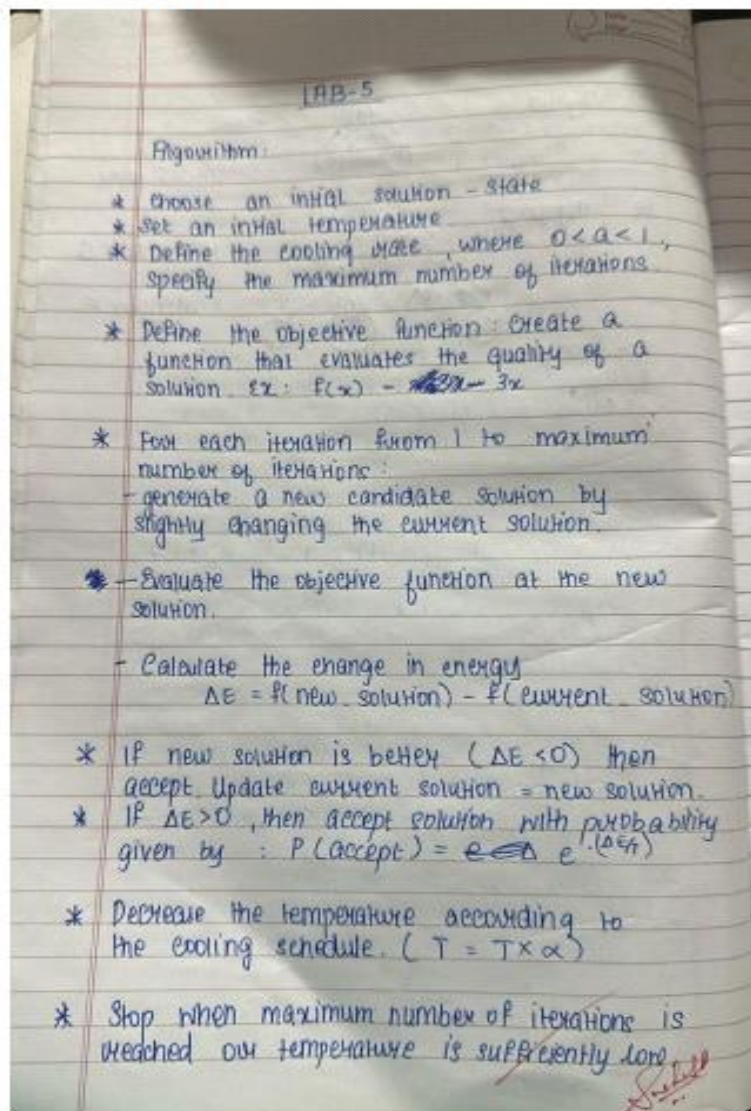 LAB-5
Algorithm:
* Choose an initial solution - state
* Set an initial temperature
* Define the cooling rate, where 0 < α < 1,
specify the maximum number of iterations.
* Define the objective function: Create a
function that evaluates the quality of a
solution. Ex: f(x) - 3x
* For each iteration from 1 to maximum
number of iterations:
- generate a new candidate solution by
slightly changing the current solution.
- Evaluate the objective function at the new
solution.
- Calculate the change in energy
ΔE = f(new_solution) - f(current_solution)
* If new solution is better (ΔE <0) then
accept. Update current solution = new solution.
* If ΔE>0, then accept solution with probability
given by : P(accept) = e^-(ΔE/T)
* Decrease the temperature according to
the cooling schedule. (T = T×α)
* Stop when maximum number of iterations is
reached or temperature is sufficiently low.